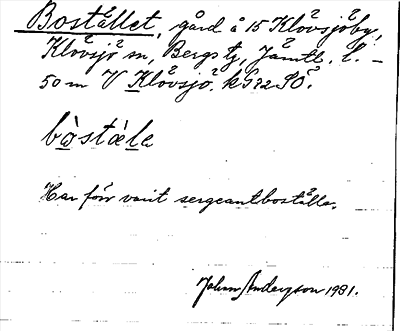 Bostället, gård å 15 Klövsjöby,
Klövsjö sn, Bergs tg, Jämtl. l. –
50 m V Klövsjö k 572 SÖ.
bòstæ̀le
Har förr varit sergeantboställe.
Johan Anderzson 1981.